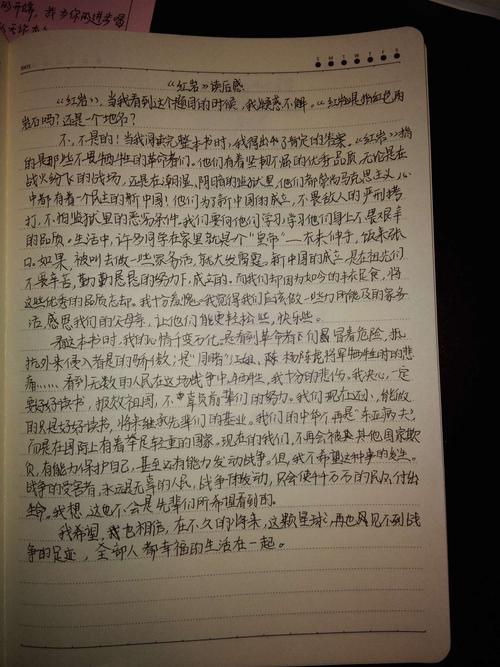 的开辟，我为你的进步喝
"红岩"读后感
"红岩"，当我看到这个题目的时候，我疑惑不解。"红岩是指红色的
岩石吗？还是一个地名？
不，不是的！当我阅读完整本书时，我得出了肯定的答案。《红岩》指
的是那些不畏牺牲的革命者们。他们有着坚韧不屈的优秀品质，无论是在
战火纷飞的战场，还是在潮湿、阴暗的监狱里，他们都崇尚马克思主义，心
中都有着一个民主的新中国！他们为了新中国的成立，不畏敌人的严刑拷
打，不怕监狱里的恶劣条件。我们要向他们学习，学习他们身上不畏艰辛
的品质。生活中，许多同学在家里就是一个"皇帝"——衣来伸手，饭来张
口。如果，被叫去做一些家务活，就大发雷霆。新中国的成立，是在祖先们
不畏辛苦，勤勤恳恳的努力下，成立的。而我们却因为如今的丰衣足食，将
这些优秀的品质丢却。我十分羞愧，我觉得我们应该做一些力所能及的家务
活，感恩我们的父母亲，让他们能更轻松些，快乐些。
看这本书时，我的心情千变万化，是看到革命者们冒着危险，抵
抗外来侵入者是的骄傲；是"目睹"江姐、陈 杨 将军牺牲时的悲
痛……看到无数的人民在这场战争中牺牲，我十分的悲伤。我决心，一定
要好好读书，报效祖国，不辜负前辈们的努力。我们现在还小，能做
的只是好好读书，将来继承先辈们的基业。我们的中华不再是"东亚病夫"，
而是在国际上有着举足轻重的国家。现在的我们，不再会被其他国家欺
负，有能力保护自己，甚至还有能力发动战争。但，我不希望这种事的发生。
战争的受害者，永远是无辜的人民，战争的发动，只会使千千万万的人民付出
生命。我想，这也不会是先辈们所希望看到的。
我希望，我也相信，在不久的将来，这颗星球，再也见不到战
争的足迹，全部人都幸福的生活在一起。